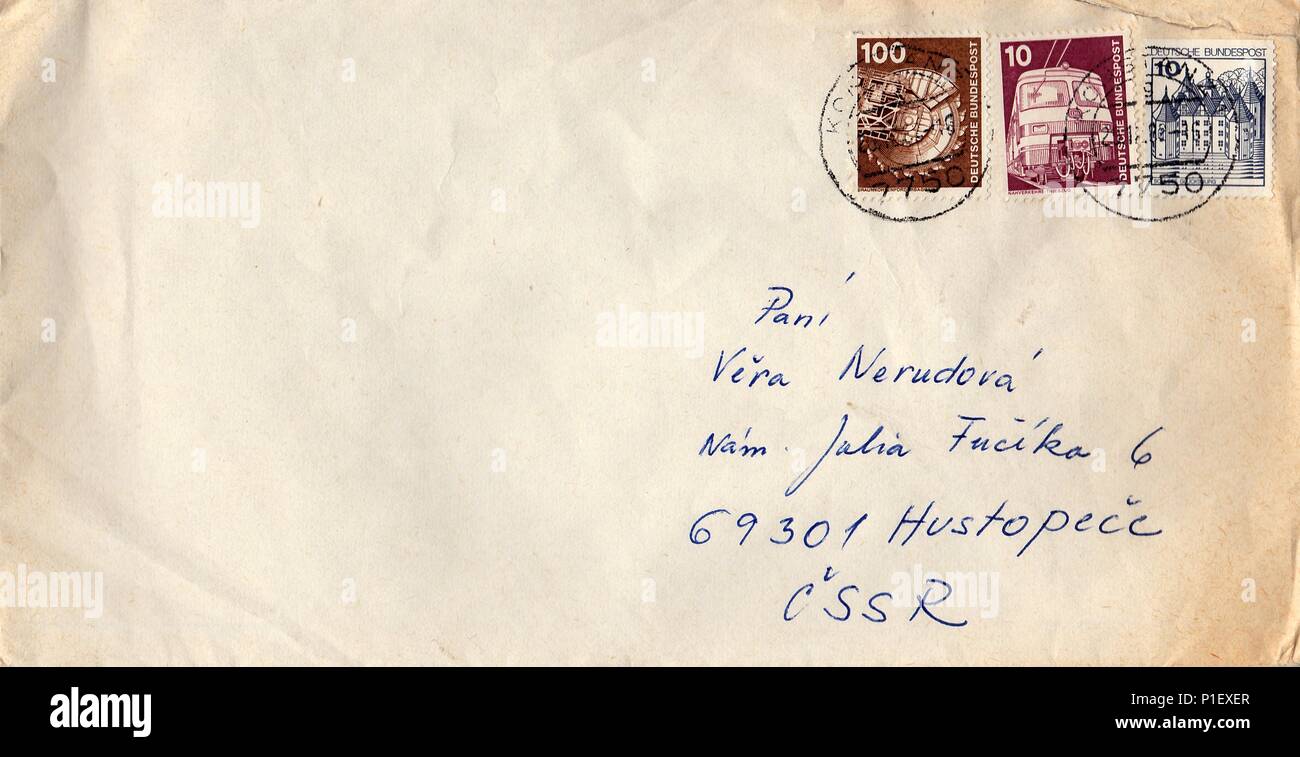 100
DEUTSCHE BUNDESPOST
10
DEUTSCHE BUNDESPOST
DEUTSCHE BUNDESPOST
10
7750
7750
Paní
Věra Nerudová
Nám. Julia Fučíka 6
69301 Hustopeče
ČSSR
alamy
alamy
alamy
alamy
alamy
alamy
Image ID: P1EXER
www.alamy.com